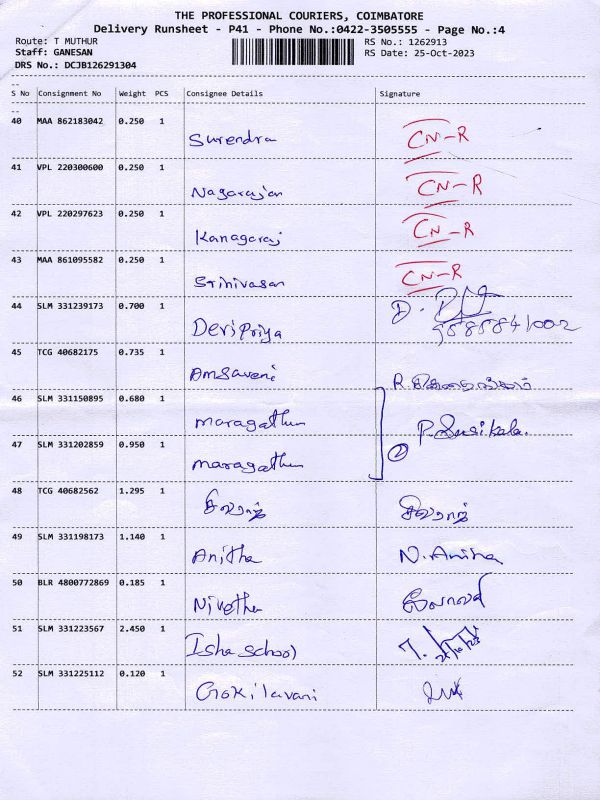 THE PROFESSIONAL COURIERS, COIMBATORE
Delivery Runsheet - P41 - Phone No.:0422-3505555 - Page No.:4
Route: T MUTHUR RS No.: 1262913
Staff: GANESAN RS Date: 25-Oct-2023
DRS No.: DCJB126291304
S No Consignment No Weight PCS Consignee Details Signature
40 MAA 862183042 0.250 1 Surendra CN-R
41 VPL 220300600 0.250 1 Nagarajan CN-R
42 VPL 220297623 0.250 1 Kanagaraj CN-R
43 MAA 861095582 0.250 1 Srinivasan CN-R
44 SLM 331239173 0.700 1 Devipriya D.
45 TCG 40682175 0.735 1 Amsaveni R.
46 SLM 331150895 0.680 1 Maragathm
47 SLM 331202859 0.950 1 Maragathm 2 P. Susikala.
48 TCG 40682562 1.295 1
49 SLM 331198173 1.140 1 Anitha N. Anitha
50 BLR 4800772869 0.185 1 Nivetha
51 SLM 331223567 2.450 1 Isha school
52 SLM 331225112 0.120 1 Gokilavani